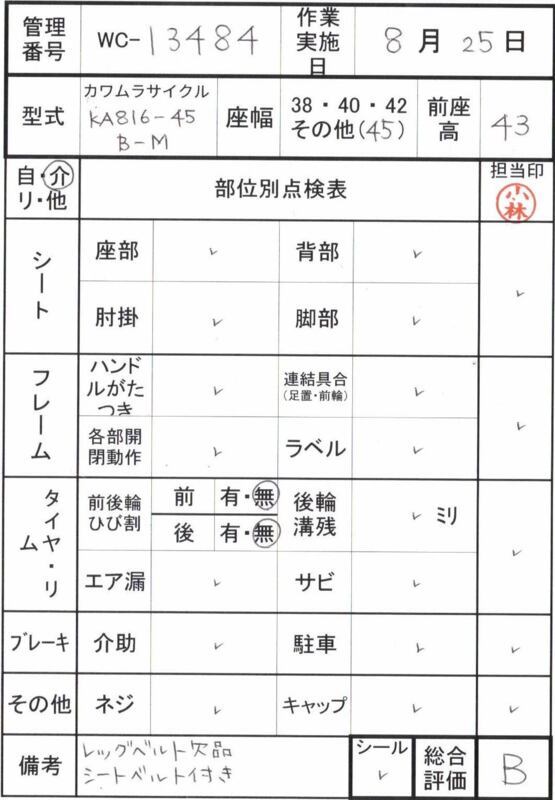 管理番号 WC-13484 作業実施日 8月25日
型式 カワムラサイクル KA816-45 B-M 座幅 38・40・42 その他(45) 前座高 43
自・介 リ・他 部位別点検表 担当印 小林
シート 座部 ✓ 背部 ✓ ✓
肘掛 ✓ 脚部 ✓
フレーム ハンドルがたつき ✓ 連結具合(足置・前輪) ✓ ✓
各部開閉動作 ✓ ラベル ✓
タイヤ・リム 前後輪ひび割 前 有・無 後輪溝残 ✓ ミリ ✓
後 有・無
エア漏 ✓ サビ ✓
ブレーキ 介助 ✓ 駐車 ✓ ✓
その他 ネジ ✓ キャップ ✓ ✓
備考 レッグベルト欠品 シール ✓ 総合評価 B
シートベルト付き